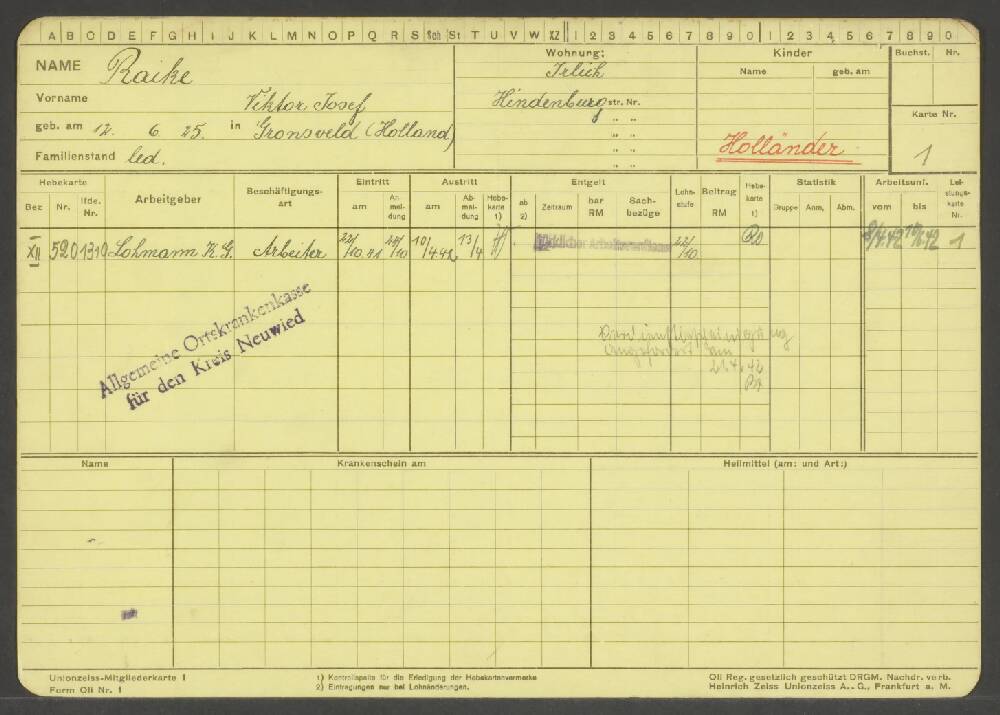 A B C D E F G H I J K L M N O P Q R S Sch St T U V W XZ 1 2 3 4 5 6 7 8 9 0 1 2 3 4 5 6 7 8 9 0
NAME Raike
Vorname Viktor Josef
geb. am 12. 6. 25. in Gronsveld (Holland)
Familienstand led.
Wohnung:
Irlich
Hindenburg str. Nr.
" "
" "
" "
Kinder
Name geb. am
Holländer
Buchst. Nr.
Karte Nr.
1
Hebekarte Arbeitgeber Beschäftigungsart Eintritt Austritt Entgelt Lohnstufe Beitrag RM Hebekarte 1) Statistik Arbeitsunf. Leistungskarte Nr.
Bez Nr. lfde. Nr. am Anmeldung am Abmeldung Hebekarte 1) ab 2) Zeitraum bar RM Sachbezüge Gruppe Anm. Abm. vom bis
XII 520 1310 Lohmann K.G. Arbeiter 22/10.41 28/10 10/4.42 13/4 Wirklicher Arbeitsverdienst 22/10 8/4.42 1
Allgemeine Ortskrankenkasse
für den Kreis Neuwied
21.4.42
Name Krankenschein am Heilmittel (am: und Art:)
Unionzeiss-Mitgliederkarte 1
Form Oli Nr. 1
1) Kontrollspalte für die Erledigung der Hebekartenvermerke
2) Eintragungen nur bei Lohnänderungen.
Oli Reg. gesetzlich geschützt DRGM. Nachdr. verb.
Heinrich Zeiss Unionzeiss A.-G., Frankfurt a. M.